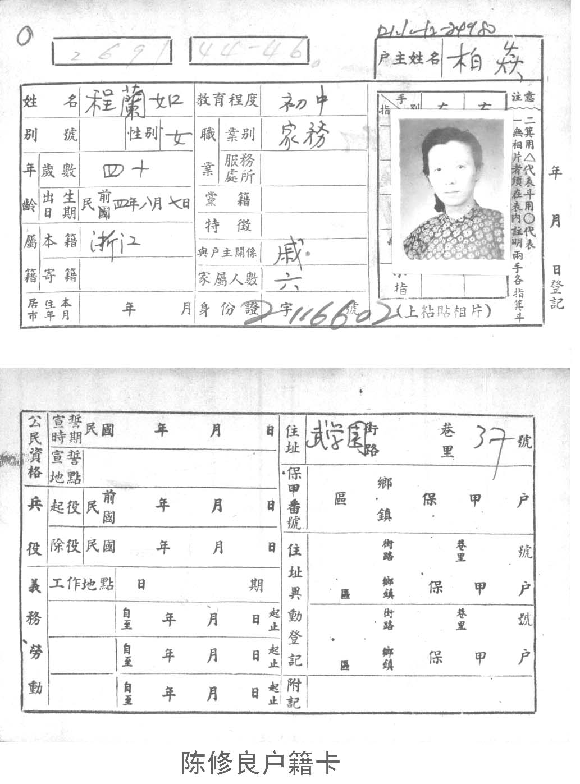 2691 44-46
户主姓名 柏焱
姓名 程蘭如 教育程度 初中
別號 性別 女 職業別 家務
年齡 歲數 四十 業 服務處所
出生日期 民國前 四年八月七日 黨籍
特徵
屬籍 本籍 浙江 與戶主關係 戚
寄籍 家屬人數 六
居住本市年月 年 月 身份證 字 2116602 號
(上粘貼相片)
注意
一無相片者須在表內註明兩手各指箕斗
二箕用△代表斗用○代表
年 月 日登記
公民資格 宣誓時期 民國 年 月 日 住址 武学園 街路 巷里 37 號
宣誓地點
保甲番號 區 鄉鎮 保 甲 户
兵役 起役 民國前 年 月 日
除役 民國 年 月 日 住址異動登記 街路 巷里 號
區 鄉鎮 保 甲 户
義務勞動 工作地點 日 期
自至 年 月 日 起止 街路 巷里 號
自至 年 月 日 起止 區 鄉鎮 保 甲 户
自至 年 月 日 起止 附記
陈修良户籍卡